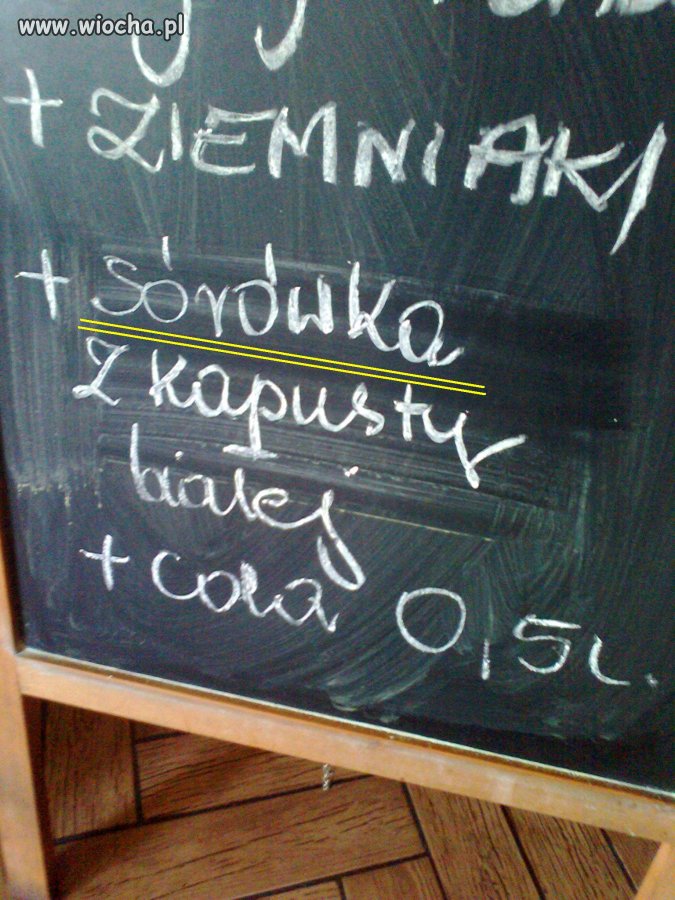 www.wiocha.pl
+ ZIEMNIAKI
+ sórówka
z kapusty
białej
+ cola 0,5l.